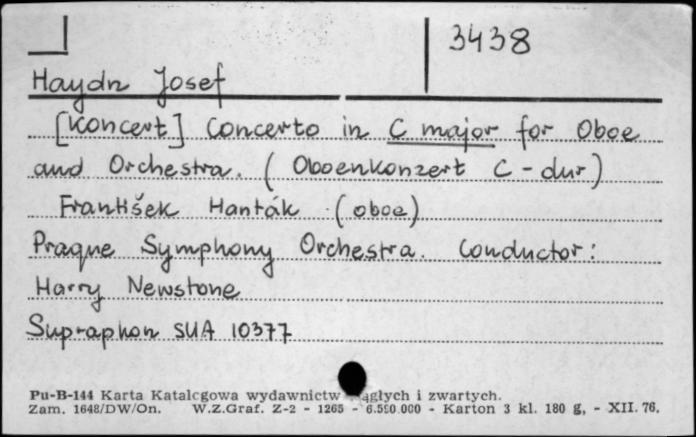 3438
Haydn Josef
[Koncert] Concerto in C major for Oboe
and Orchestra. (Oboenkonzert C-dur)
František Hanták (oboe)
Prague Symphony Orchestra. Conductor:
Harry Newstone
Supraphon SUA 10377
Pu-B-144 Karta Katalogowa wydawnictw ągłych i zwartych.
Zam. 1648/DW/On. W.Z.Graf. Z-2 - 1265 - 6.590.000 - Karton 3 kl. 180 g, - XII. 76.